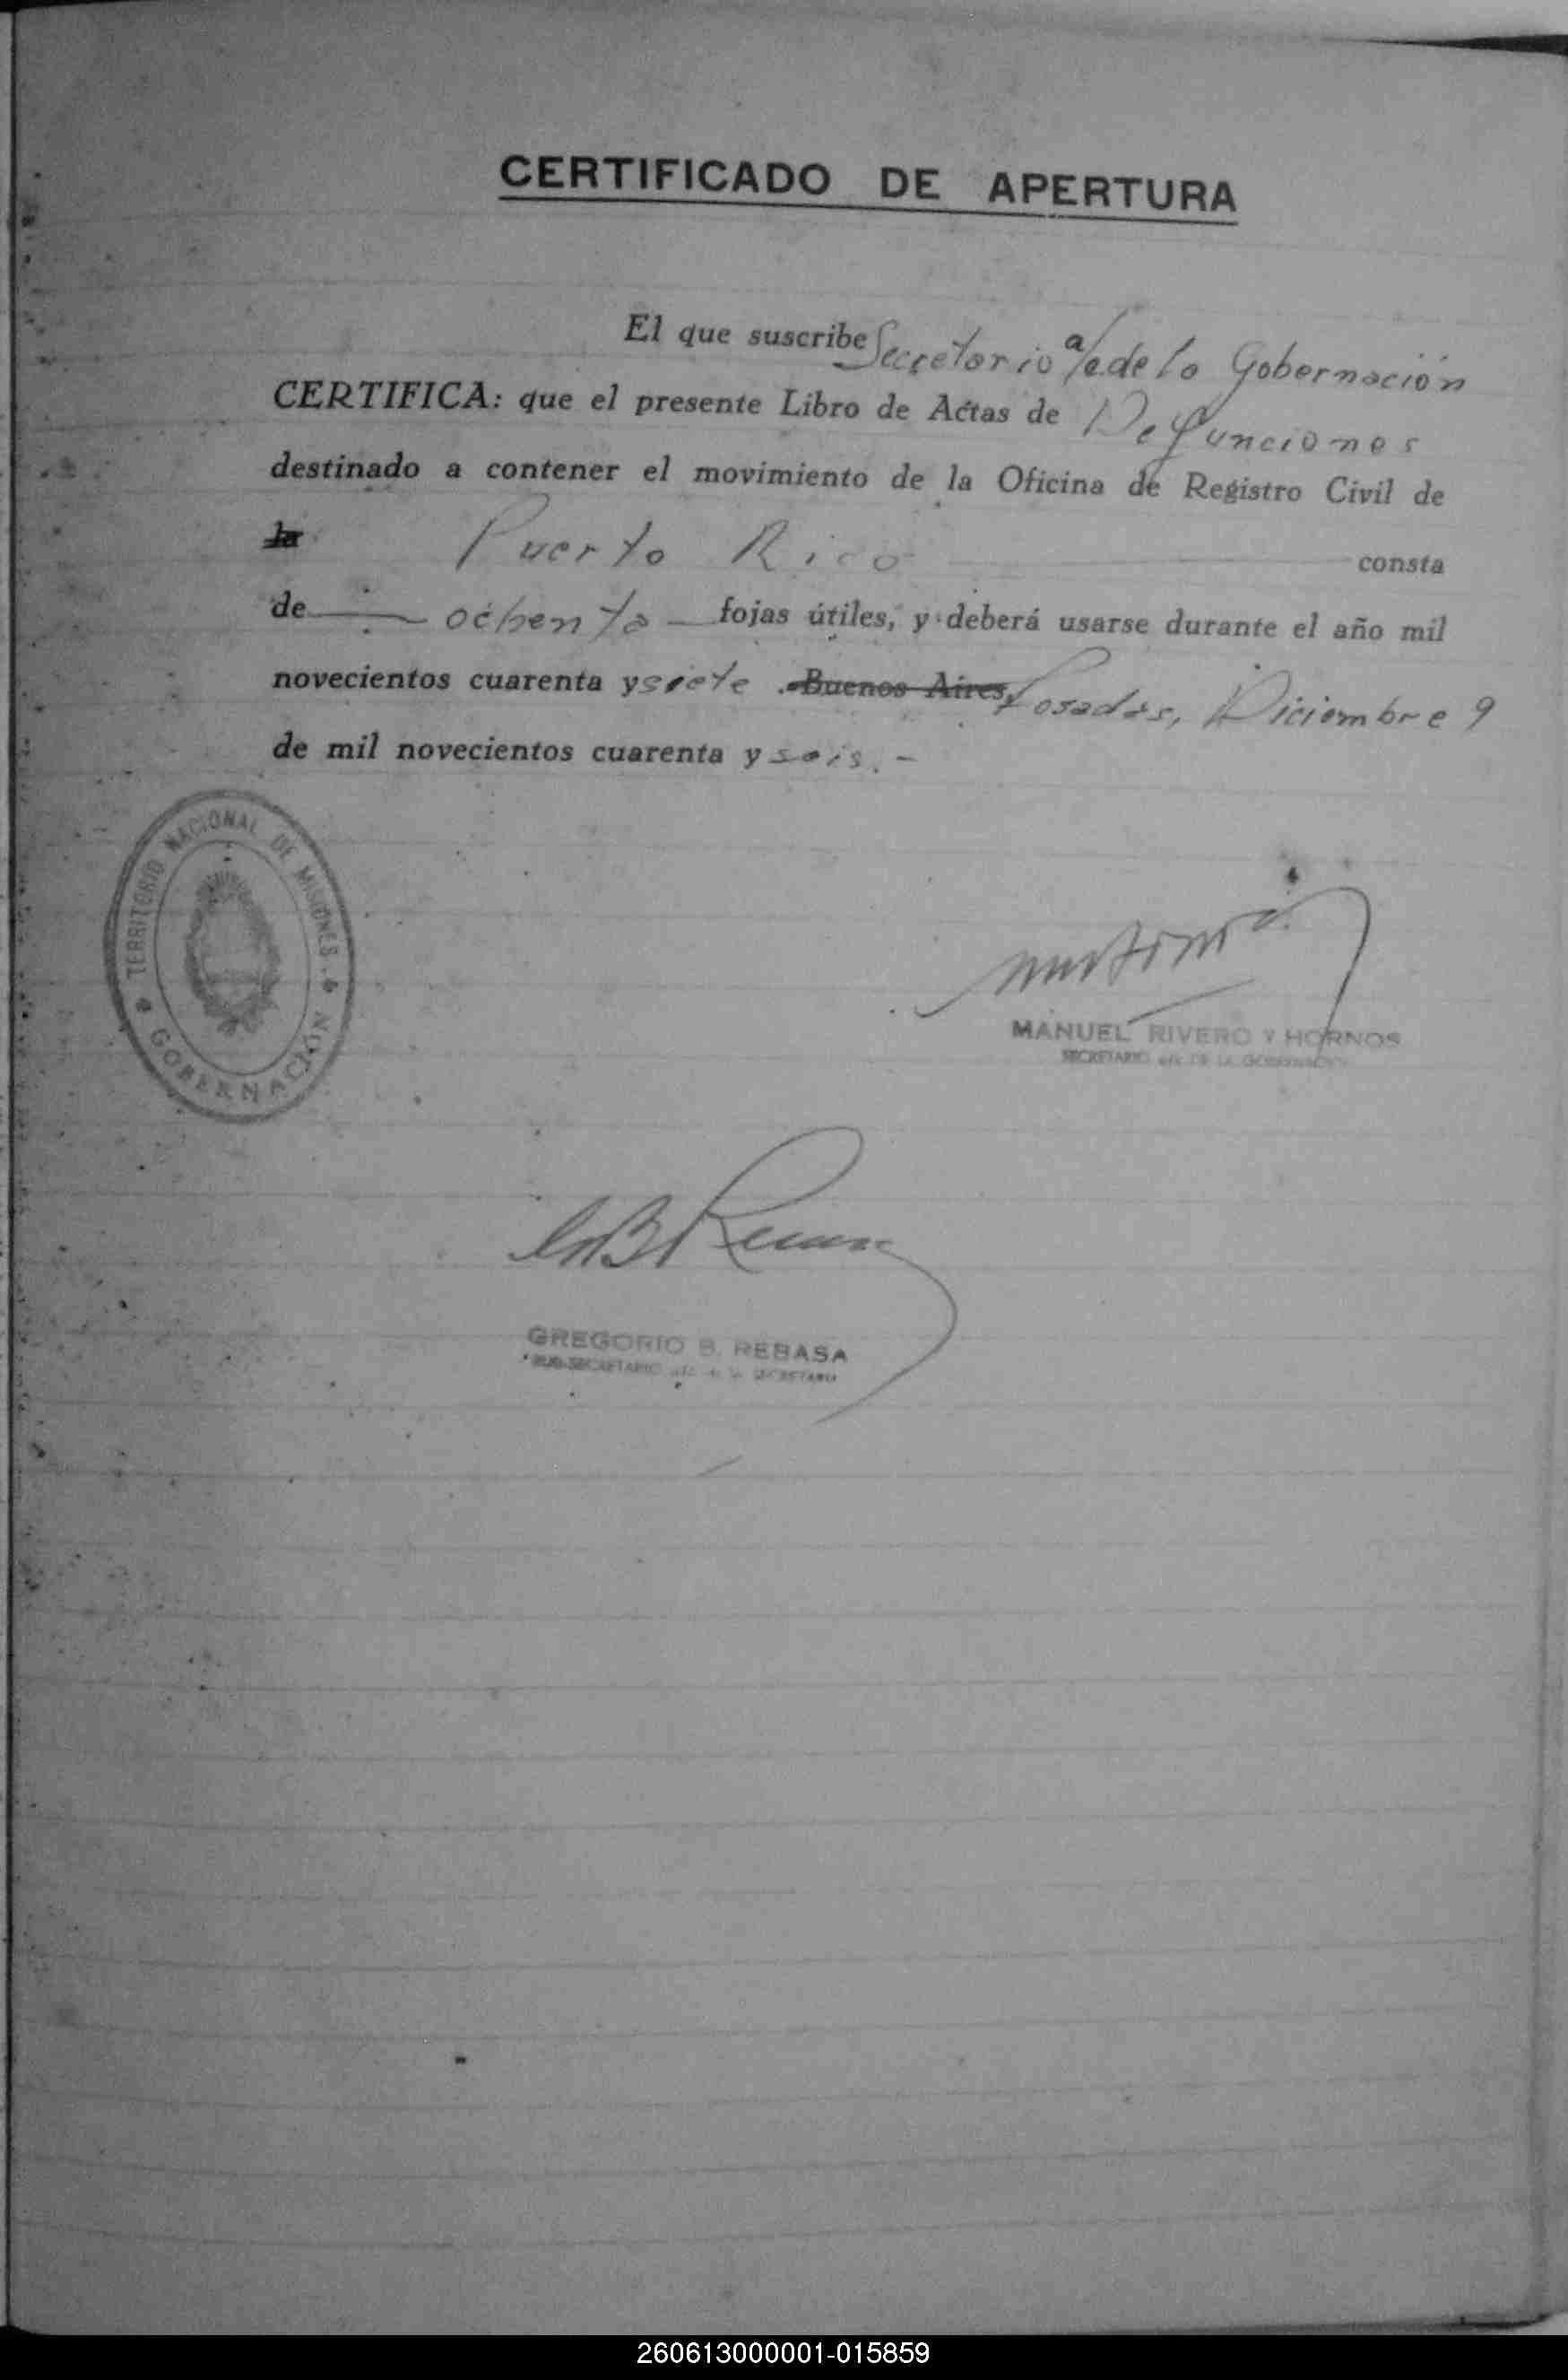 CERTIFICADO DE APERTURA
El que suscribe Secretario a/c de la Gobernación
CERTIFICA: que el presente Libro de Actas de Defunciones
destinado a contener el movimiento de la Oficina de Registro Civil de
la Puerto Rico consta
de ochenta fojas útiles, y deberá usarse durante el año mil
novecientos cuarenta y siete Buenos Aires, Posadas, Diciembre 9
de mil novecientos cuarenta y seis.-
TERRITORIO NACIONAL DE MISIONES
GOBERNACIÓN
MANUEL RIVERO Y HORNOS
SECRETARIO a/c DE LA GOBERNACION
GREGORIO B. REBASA
SUB-SECRETARIO a/c de la SECRETARIA
260613000001-015859